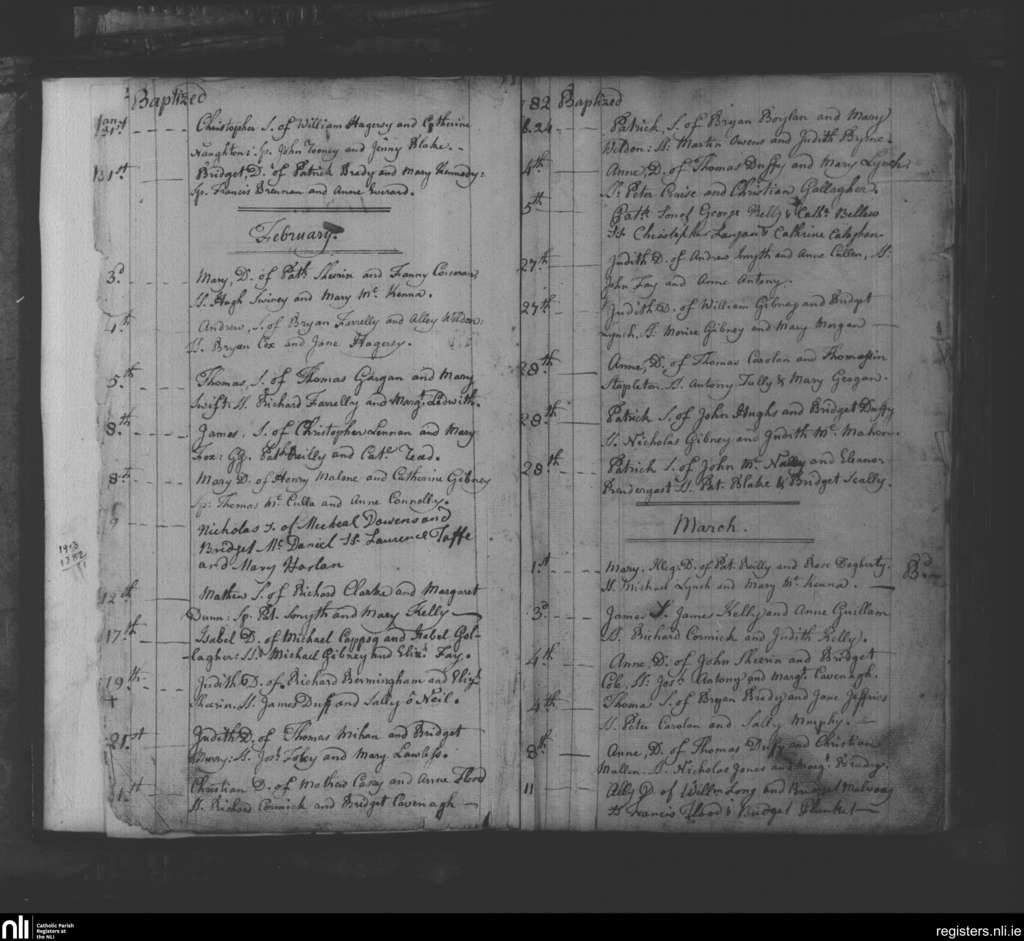 Baptized
Jan 31st Christopher S. of William Hagersy and Catherine
Naughton: Sp. John Tooney and Jenny Blake.
31st Bridget, D. of Patrick Bredy and Mary Kennedy:
Sp. Francis Brennan and Anne
February.
3d Mary, D. of Patk Sheerin and Franny Corcoran
Ss. Hugh Swiney and Mary Mc Kenna.
4th Andrew, S. of Bryan Farrelly and Alley Weldon:
Ss. Bryan Cox and Jane Hagersy.
5th Thomas, S. of Thomas Gargan and Mary
Swift: Ss. Richard Farrelly and Margt Ledwith.
8th James, S. of Christopher Lennan and Mary
Fox: Patk Reilly and Cate
8th Mary D. of Henry Malone and Catherine Gibney
Sp: Thomas Mc Culla and Anne Connolly.
9 Nicholas S. of Micheal Dowens and
Bridget Mc Daniel Ss. Laurence Taffe
and Mary Harlan
12th Mathew S. of Richard Clarke and Margaret
Dunn: Sp. Pat. Smyth and Mary Kelly
17th Isabel D. of Michael and Isabel Gol-
-lagher: Ss. Michael Gibney and Eliz. Fay.
19th Judith D. of Richard Bermingham and Eliz.
Sheerin. Ss. James Duff and Sally o Neil.
21st Judith D. of Thomas Mihan and Bridget
Ss. Jos. Foley and Mary Lawless.
1st Christian D. of Mathew Casey and Anne Flood
Ss. Richard Cormick and Bridget Cavenagh
1913
1782
82 Baptized
24 Patrick, S. of Bryan Boylan and Mary
Weldon: Ss. Martin Owens and Judith Byrne.
4th Anne, D. of Thomas Duffy and Mary Lynch:
Ss. Peter Cruise and Christian Gallagher.
5th Path Son of George Relly & Cath. Bellew
Ss Christopher Langan & Cathrine Calaghan
27th Judith D. of Andrew Smyth and Anne Cullen, Ss.
John Fay and Anne Antony.
27th Judith D. of William Gibney and Bridget
Lynch. Ss. Gibney and Mary Morgan
28th Anne, D. of Thomas Carolan and Thomasin
Stapleton. Ss. Antony Tully & Mary Geogan.
28th Patrick S. of John Hughs and Bridget Duffy
Ss. Nicholas Gibney and Judith Mc Mahon.
28th Patrick S. of John Mc Nally and Eleanor
Prendergast Ss. Pat. Blake & Bridget Scally.
March.
1st Mary. Illeg. D. of Pat. Reilly and Rose Dogherty.
Ss. Michael Lynch and Mary Mc Kenna. Pd
3d James S. James Kelly and Anne Quillan
Ss. Richard Cormick and Judith Kelly.
4th Anne, D. of John Sheerin and Bridget
Cole, Ss. Jos. Antony and Margt. Cavenagh.
4th Thomas S. of Bryan Bredy and Jane Jeffries
Ss. Peter Carolan and Sally Murphy.
8th Anne, D. of Thomas Duffy and Christian
Mullen. Ss. Nicholas Jones and Margt. Bredy.
11 Ally D. of Willm Long and Bridget
Ss Francis Flood & Bridget Plunket
nli Catholic Parish
Registers at
the NLI
registers.nli.ie